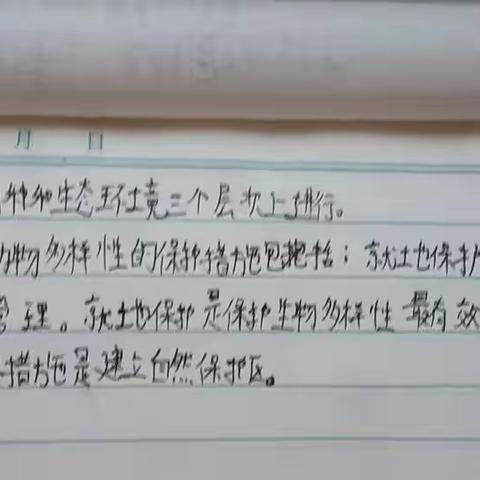 月 日
种和生态环境三个层次上进行。
动物多样性的保护措施包括：就土地保护
管理。就土地保护是保护生物多样性最有效
措施是建立自然保护区。